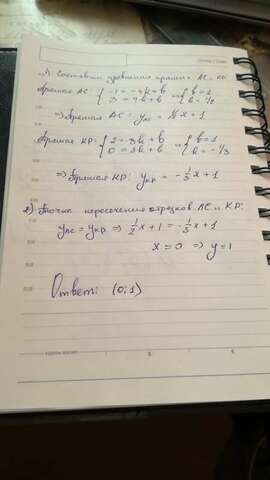 1) Составим уравнения прямых AC и KP:
Прямая AC { -1 = -4k + b ⇒ { b = 1
3 = 4k + b { k = 1/2
⇒ Прямая AC: y_AC = ½x + 1
Прямая KP: { 2 = -3k + b ⇒ { b = 1
0 = 3k + b { k = -1/3
⇒ Прямая KP: y_KP = -1/3 x + 1
2) Точка пересечения отрезков AC и KP:
y_AC = y_KP ⇒ 1/2 x + 1 = -1/3 x + 1
x = 0 ⇒ y = 1
Ответ: (0; 1)